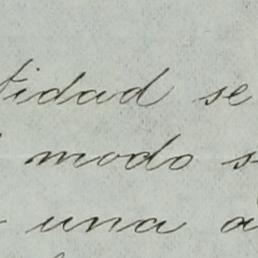 tidad se
modo
una a